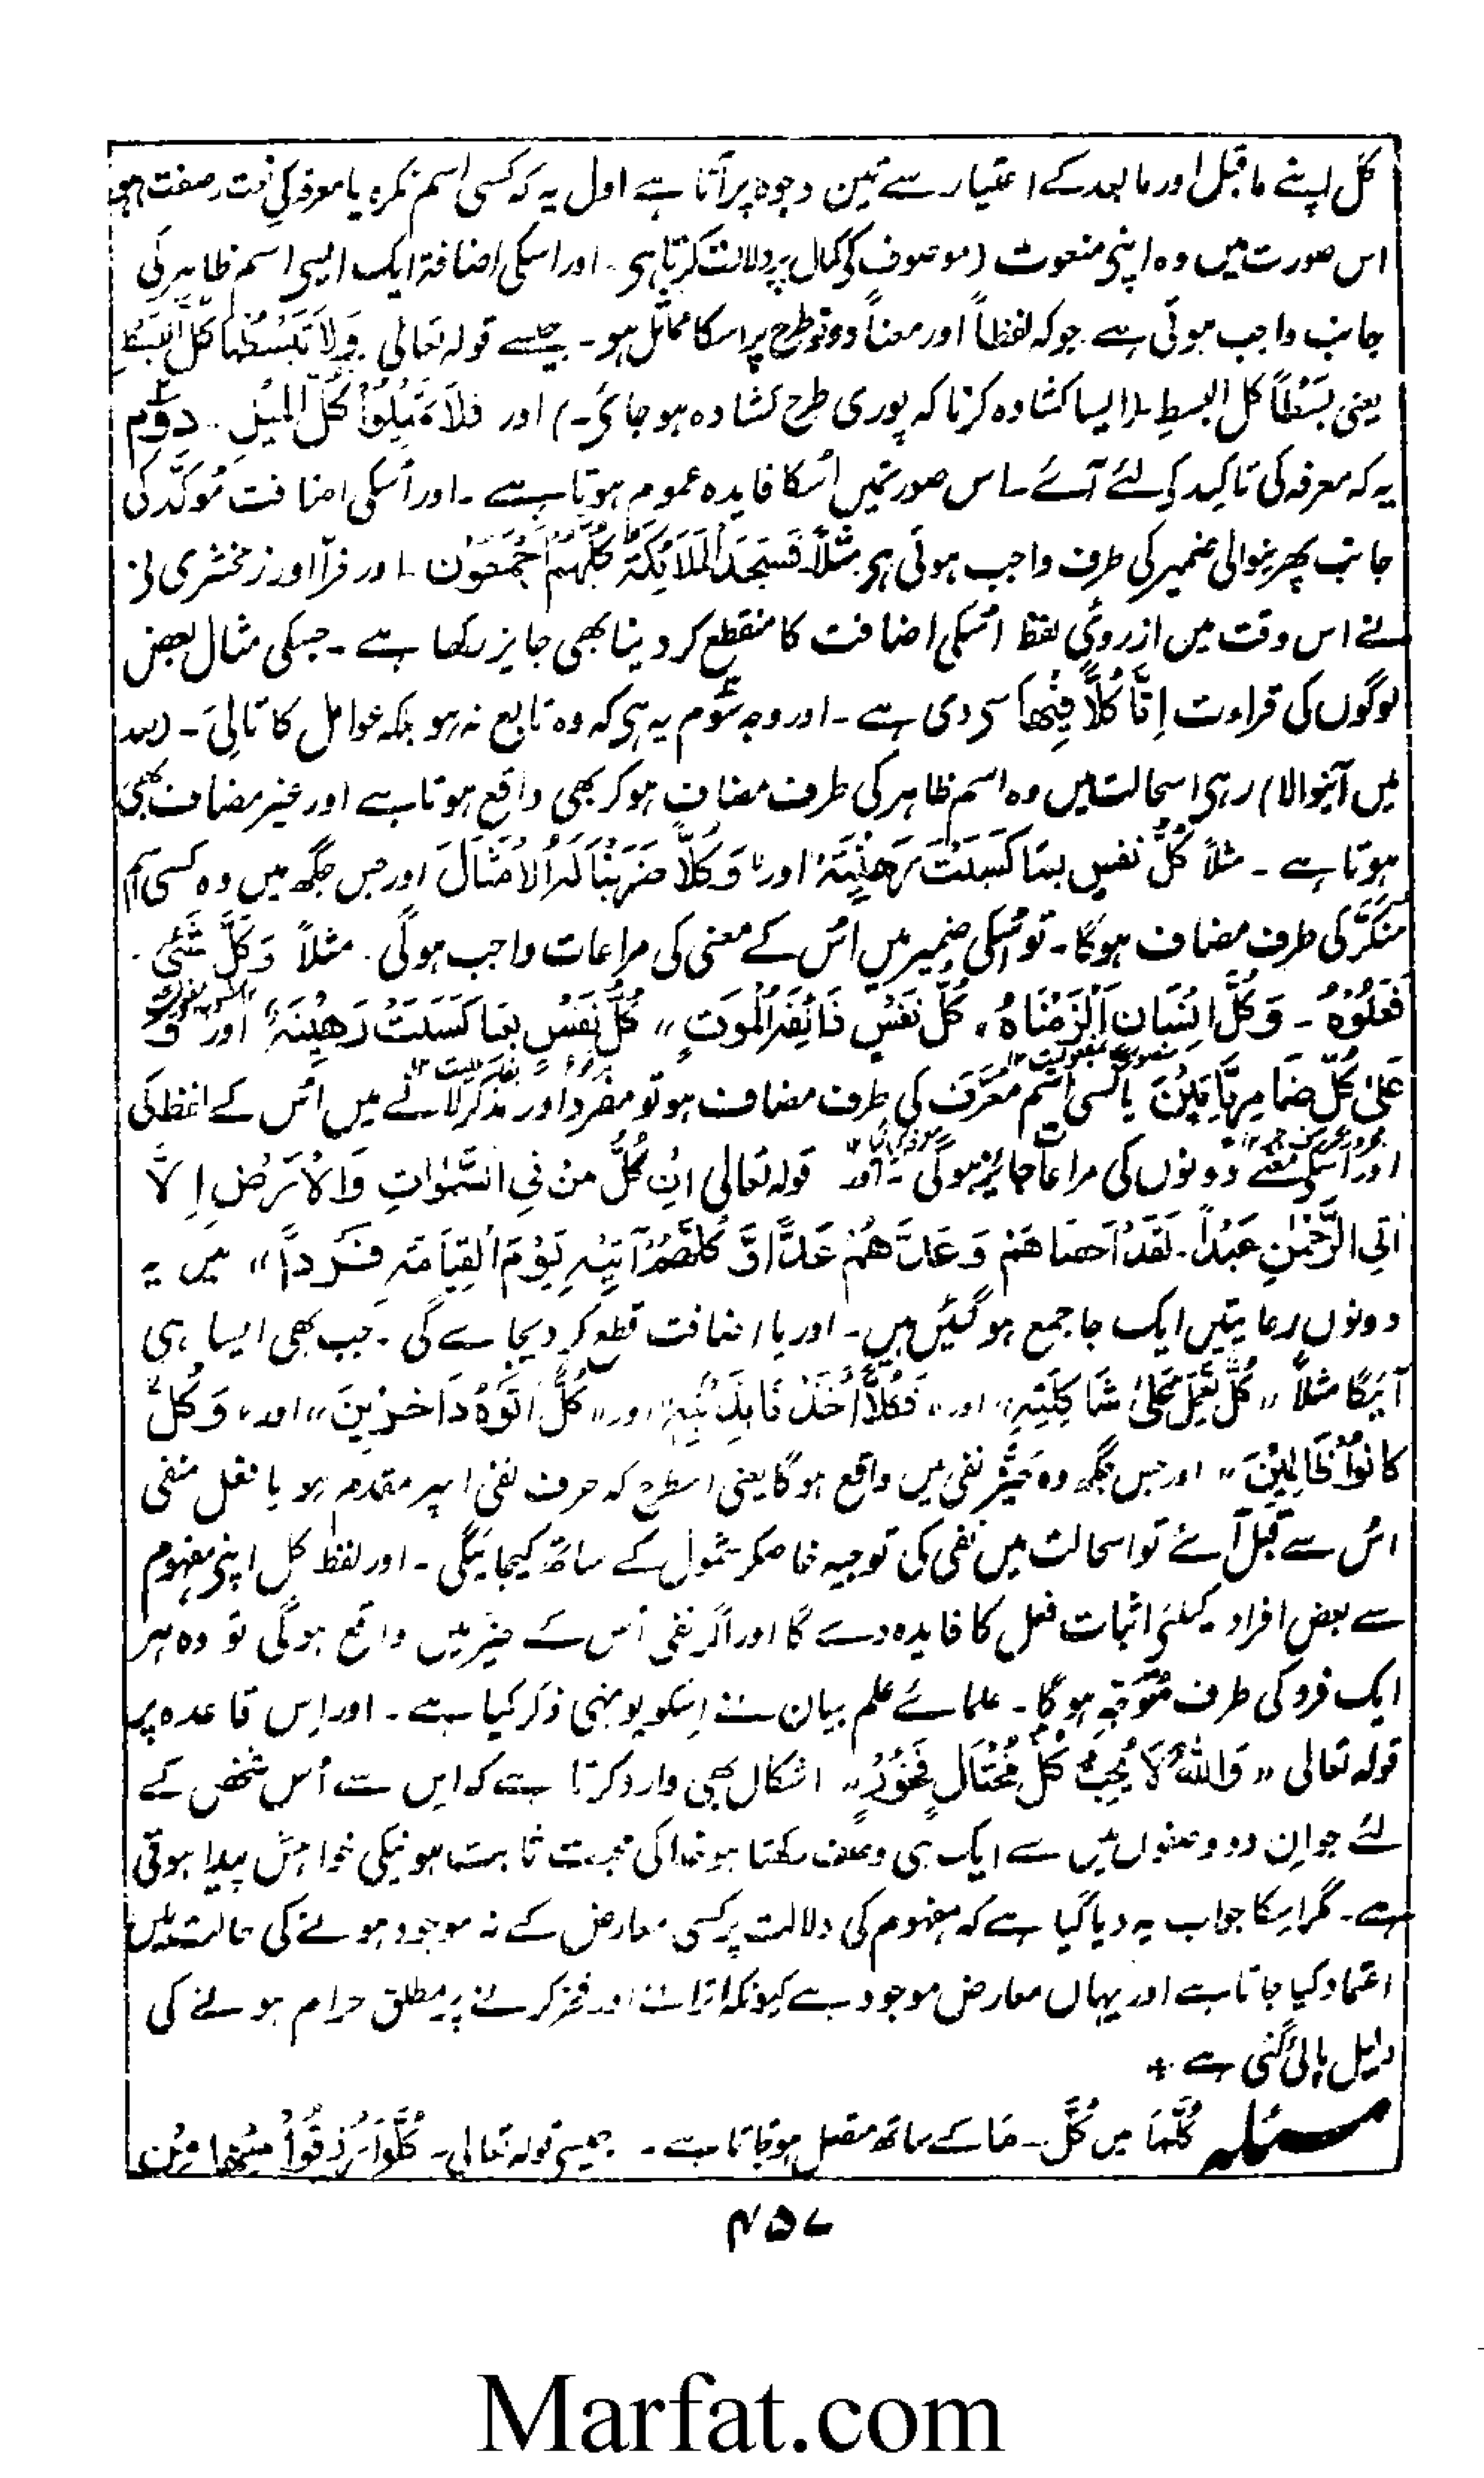 کُل اپنے ماقبل اور مابعد کے اعتبار سے تین وجوہ پر آتا ہے اول یہ کہ کسی اسم نکرہ یا معرفہ کی نعت رصفت ہو
اس صورت میں وہ اپنی منعوت (موصوف کی کمال پر دلالت کرتا ہی ۔ اور اسکی اضافۃ ایک ایسی اسم ظاہر کی
جانب واجب ہوتی ہے جو کہ لفظاً اور معناً دونو طرح پر اسکا مماثل ہو ۔ جیسے قولہ تعالی وَلَا تَبْسُطْهَا كُلَّ الْبَسْطِ
یعنی بَسْطًا کل البسطِ ایسا کشادہ کرنا کہ پوری طرح کشادہ ہو جائی ۔) اور فَلَا تَمِيْلُوْا كُلَّ الْمَيْلِ ۔ دوّم
یہ کہ معرفہ کی تاکید کی لئے آئے ۔ اس صورتمیں اُسکا فایدہ عموم ہوتا ہے ۔ اور اُسکی اضافت مُوکَّد کی
جانب پھرنیوالی ضمیر کی طرف واجب ہوتی ہی مثلاً فَسَجَدَ الْمَلَائِكَةُ كُلُّهُمْ اَجْمَعُوْنَ ۔ اور فرّا اور زمخشری نی
نے اس وقت میں ازروئی لفظ اُسکی اضافت کا منقطع کر دینا بھی جایز رکھا ہے ۔ جسکی مثال بعض
لوگوں کی قراءت اِنَّا كُلًّا فِيْهَا سی دی ہے ۔ اور وجہ سوّم یہ ہی کہ وہ تابع نہ ہو بلکہ عوامل کا تالی ۔ (بعد
میں آنیوالا) رہی اسحالت میں وہ اسم ظاہر کی طرف مضاف ہو کر بھی واقع ہوتا ہے اور غیر مضاف بھی
ہوتا ہے ۔ مثلاً كُلُّ نَفْسٍ بِمَا كَسَبَتْ رَهِيْنَةٌ اور وَكُلًّا ضَرَبْنَا لَهُ الْاَمْثَالَ اور جس جگہ میں وہ کسی اسم
مُنکَّر کی طرف مضاف ہوگا ۔ تو اُسکی ضمیر میں اُس کے معنی کی مراعات واجب ہوگی ۔ مثلاً وَكُلُّ شَيْءٍ
فَعَلُوْهُ ۔ وَكُلَّ اِنْسَانٍ اَلْزَمْنَاهُ ۔ كُلُّ نَفْسٍ ذَائِقَةُ الْمَوْتِ ،، كُلُّ نَفْسٍ بِمَا كَسَبَتْ رَهِيْنَةٌ اور وَ
عَلٰى كُلِّ ضَامِرٍ يَّاْتِيْنَ یا کسی اسم مُعرَّف کی طرف مضاف ہو تو مفرد اور مذکر لانے میں اُس کے لفظ کی
اور اسکے معنے دونوں کی مراعاۃ جائز ہوگی ۔ اور قولہ تعالی اِنْ كُلُّ مَنْ فِي السَّمٰوٰتِ وَالْاَرْضِ اِلَّا
اٰتِي الرَّحْمٰنِ عَبْدًا ۔ لَقَدْ اَحْصَاهُمْ وَعَدَّهُمْ عَدًّا وَّكُلُّهُمْ آتِيْهِ يَوْمَ الْقِيَامَةِ فَرْدًا ،، میں یہ
دونوں رعایتیں ایک جا جمع ہو گئیں ہیں ۔ اور یا اضافت قطع کر دیجاے گی ۔ جب بھی ایسا ہی
آئیگا مثلاً ،، كُلٌّ يَّعْمَلُ عَلٰى شَاكِلَتِهِ ،، اور ،، فَكُلًّا اَخَذْنَا بِذَنْبِهِ ،، اور ،، كُلٌّ اَتَوْهُ دَاخِرِيْنَ ،، اور ،، وَكُلٌّ
كَانُوْا ظَالِمِيْنَ ،، اور جس جگہ وہ حَیِّز نفی میں واقع ہوگا یعنی اسطرح کہ حرف نفی اسپر مقدم ہو یا فعل منفی
اُس سے قبل آئے تو اسحالت میں نفی کی توجیہ خاصکر شمول کے ساتھ کیجائیگی ۔ اور لفظ کل اپنی مفہوم
سے بعض افراد کیلئی اثبات فعل کا فایدہ دے گا اور اگر نفی اُس کے حیّز میں واقع ہوگی تو وہ ہر
ایک فرد کی طرف مُتوجّہ ہوگا ۔ علمائے علم بیان نے اِسکو یونہی ذکر کیا ہے ۔ اور اِس قاعدہ پر
قولہ تعالی ،، وَاللّٰهُ لَا يُحِبُّ كُلَّ مُخْتَالٍ فَخُوْرٍ ،، اشکال بھی وارد کرتا ہے کہ اِس سے اُس شخص کے
لئے جو اِن دو وصفوں میں سے ایک ہی وصف رکھتا ہو خدا کی محبت ثابت ہونیکی خواہش پیدا ہوتی
ہے ۔ مگر اسکا جواب یہ دیا گیا ہے کہ مفہوم کی دلالت پر کسی معارض کے نہ موجود ہونے کی حالت میں
اعتماد کیا جاتا ہے اور یہاں معارض موجود ہے کیونکہ اترانے اور فخر کرنے پر مطلق حرام ہونے کی
دلیل پائی گئی ہے +
مسئلہ كُلَّمَا میں کُلّ ۔ مَا کے ساتھ متصل ہو جاتا ہے ۔ جیسی قولہ تعالی ۔ كُلَّمَا رُزِقُوْا مِنْهَا مِنْ
۴۵۷
Marfat.com